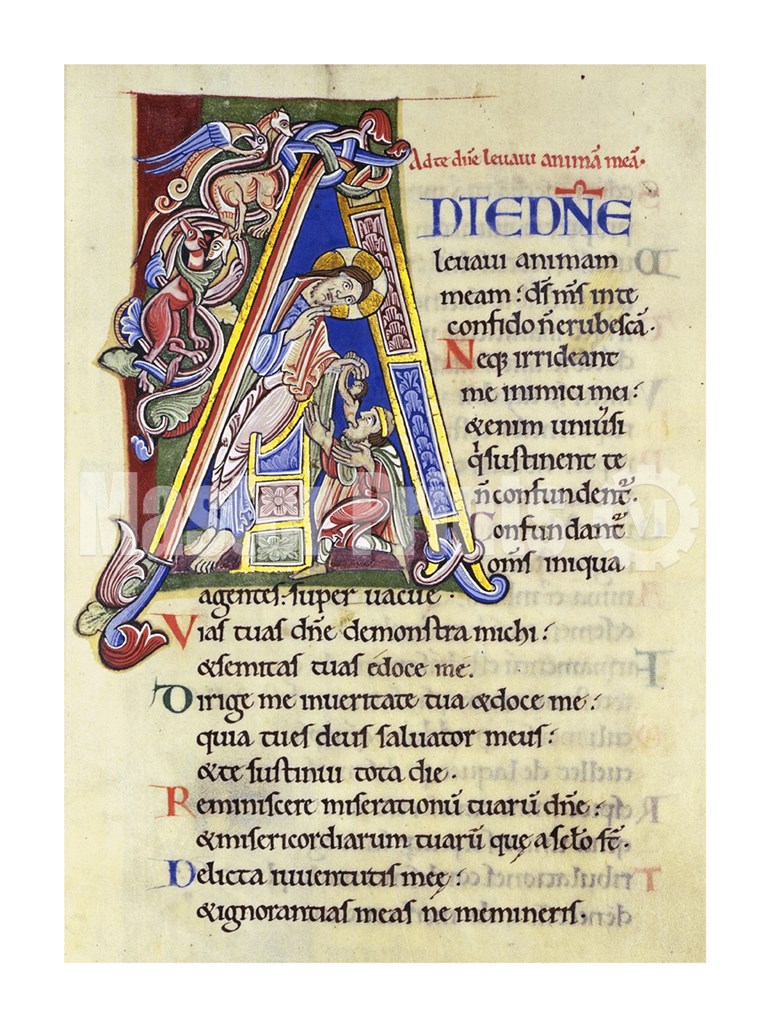 Ad te dn̄e levavi animā meā.
AD TE DN̄E
levavi animam
meam: d̄s m̄s inte
confido n̄ erubescā.
Neq; irrideant
me inimici mei:
& enim uniu͛si
qͥ sustinent te
n̄ confundent᷑.
Confundant᷑
om̄s iniqua
agentes: super vacue.
Vias tuas dn̄e demonstra michi:
& semitas tuas edoce me.
Dirige me inveritate tua & doce me:
quia tu es deus salvator meus:
& te sustinui tota die.
Reminiscere miserationū tuarū dn̄e:
& misericordiarum tuarū quę a sc̄lo st̄.
Delicta iuventutis meę:
& ignorantias meas ne memineris.